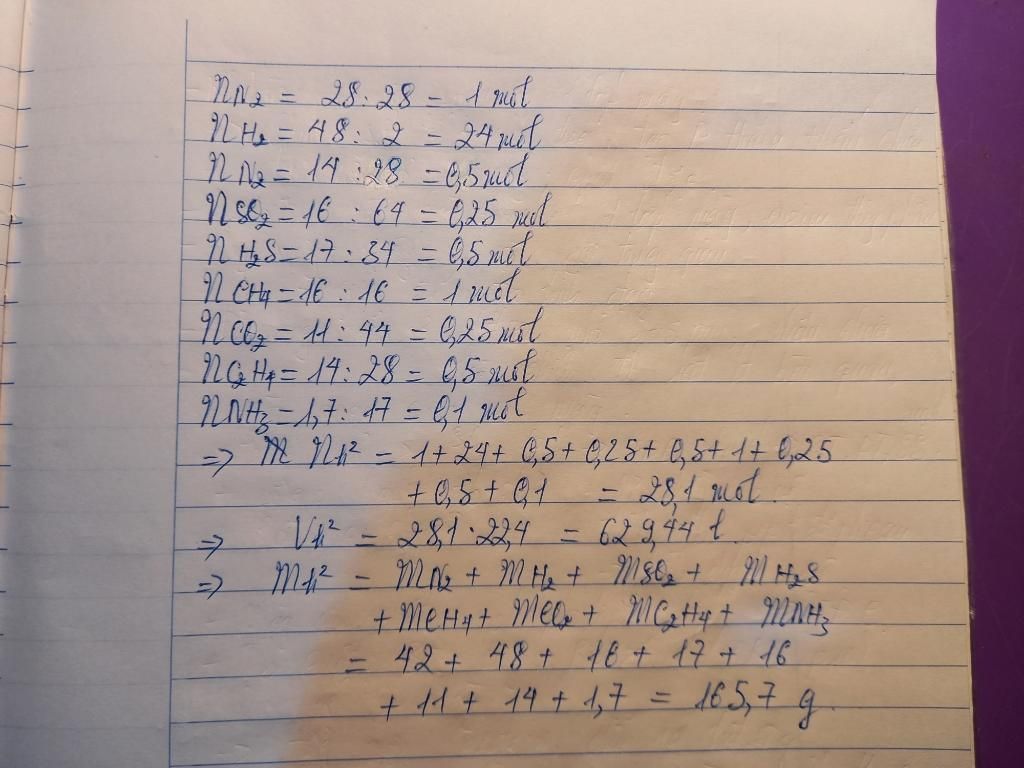 nN2 = 28 : 28 = 1 mol
nH2 = 48 : 2 = 24 mol
nN2 = 14 : 28 = 0,5 mol
nSO2 = 16 : 64 = 0,25 mol
nH2S = 17 : 34 = 0,5 mol
nCH4 = 16 : 16 = 1 mol
nCO2 = 11 : 44 = 0,25 mol
nC2H4 = 14 : 28 = 0,5 mol
nNH3 = 1,7 : 17 = 0,1 mol
=> nh² = 1 + 24 + 0,5 + 0,25 + 0,5 + 1 + 0,25
+ 0,5 + 0,1 = 28,1 mol.
=> Vh² = 28,1 . 22,4 = 629,44 l.
=> mh² = mN2 + mH2 + mSO2 + mH2S
+ mCH4 + mCO2 + mC2H4 + mNH3
= 42 + 48 + 16 + 17 + 16
+ 11 + 14 + 1,7 = 165,7 g.